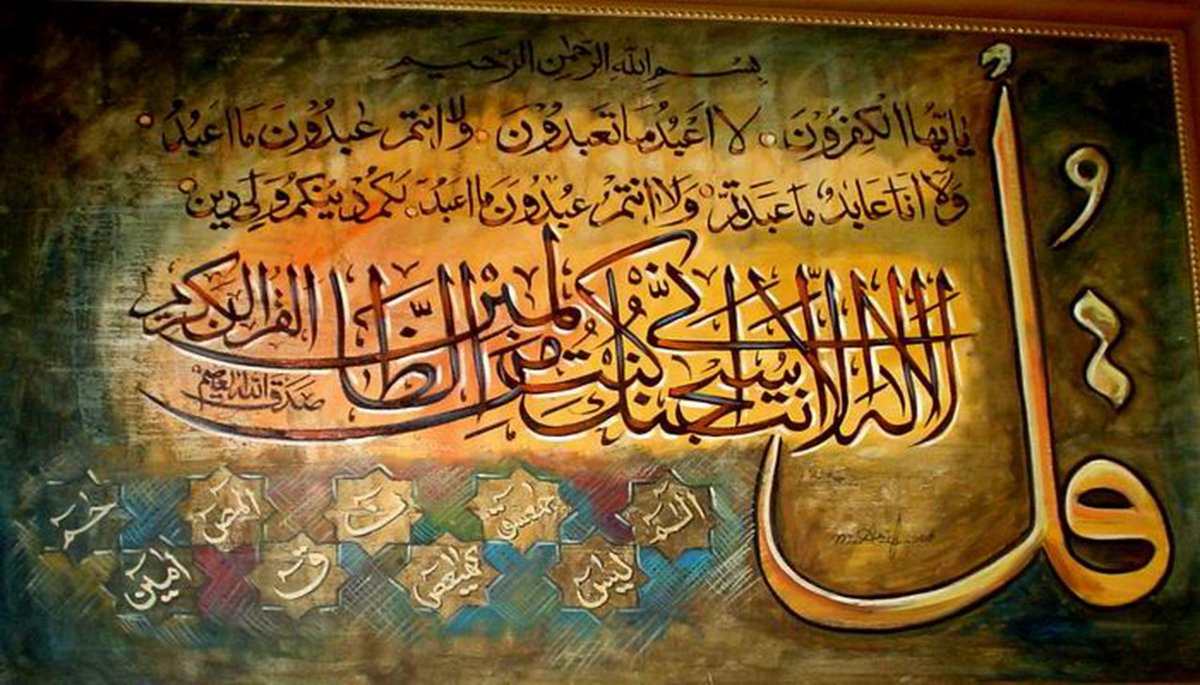 بِسْمِ اللهِ الرَّحْمٰنِ الرَّحِيمِ
قُلْ
يٰايّها الكٰفِرُونَ لا اعْبُدُ مَا تَعبدُوْنَ ولا انتم عٰبِدُوْنَ مَا اعبُدُ
وَلا انَا عَابِدٌ ما عبدتّم وَلا انتم عٰبِدُوْنَ ما اعبد لكم دينكم ولي دين
لا اله الا انت سبحنك اني كنت من الظّلمين
القرآن الكريم
صدق الله العظيم
الٓمٓ حمعسق ن المص حم
يس كهيعص ق امين